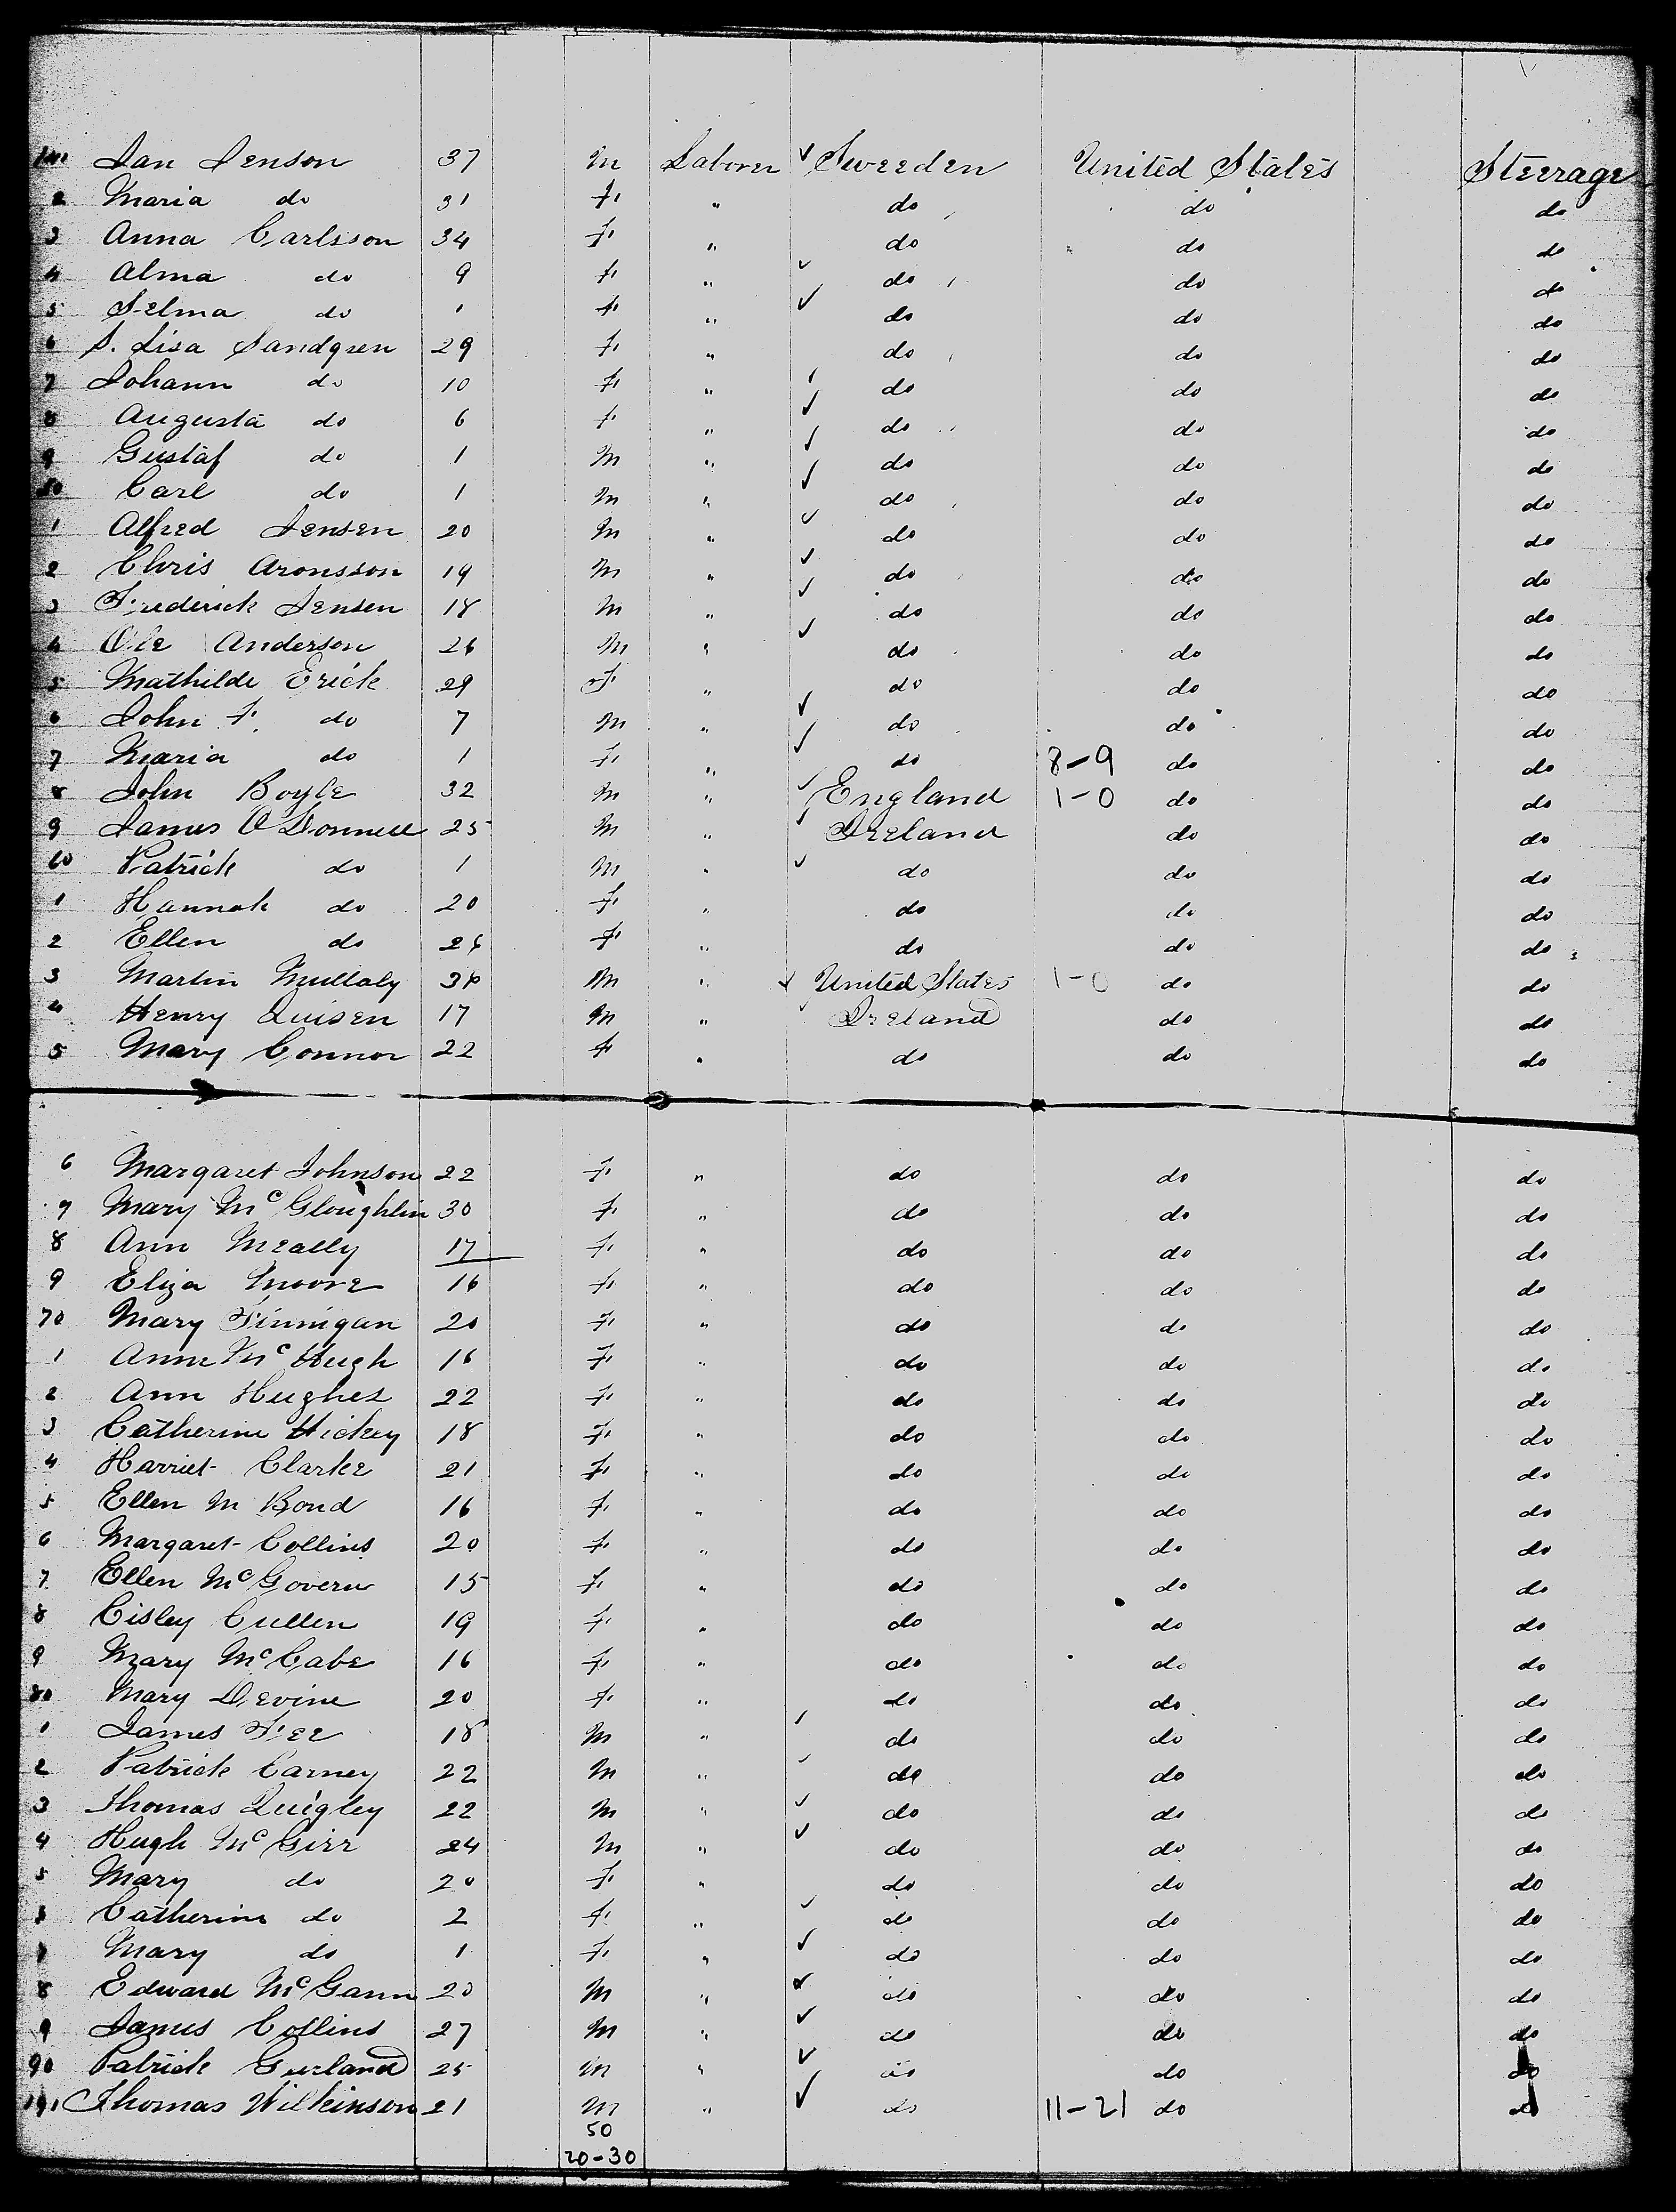 Jan Jenson 37 M Laborer ✓ Sweeden United States Steerage
2 Maria do 31 F. " do do do
3 Anna Carlsson 34 F. " do do do
4 Alma do 9 F. " ✓ do do do
5 Selma do 1 F. " ✓ do do do
6 S. Lisa Sandgren 29 F. " do do do
7 Johann do 10 F. " ✓ do do do
8 Augusta do 6 F. " ✓ do do do
9 Gustaf do 1 M " ✓ do do do
50 Carl do 1 M " ✓ do do do
1 Alfred Jensen 20 M " ✓ do do do
2 Chris Aronsson 19 M " ✓ do do do
3 Frederick Jensen 18 M " ✓ do do do
4 Ole Anderson 26 M " ✓ do do do
5 Mathilde Erick 29 F. " do do do
6 John F. do 7 M " ✓ do do do
7 Maria do 1 F. " ✓ do 8-9 do do
8 John Boyle 32 M " ✓ England 1-0 do do
9 James O'Donnell 25 M " ✓ Ireland do do
60 Patrick do 1 M " ✓ do do do
1 Hannah do 20 F. " do do do
2 Ellen do 26 F. " do do do
3 Martin Mullaly M " ✓ United States 1-0 do do
4 Henry Quisen 17 M " Ireland do do
5 Mary Connor 22 F " do do do
6 Margaret Johnson 22 F. " do do do
7 Mary McGloughlin 30 F. " do do do
8 Ann Meally 17 F. " do do do
9 Eliza Moore 16 F. " do do do
70 Mary Finnigan 20 F. " do do do
1 Anne McHugh 16 F. " do do do
2 Ann Hughes 22 F. " do do do
3 Catherine Hickey 18 F. " do do do
4 Harriet Clarke 21 F. " do do do
5 Ellen M Bond 16 F. " do do do
6 Margaret Collins 20 F. " do do do
7 Ellen McGovern 15 F. " do do do
8 Cisley Cullen 19 F. " do do do
9 Mary McCabe 16 F. " do do do
80 Mary Devine 20 F. " do do do
1 James Fee 18 M " ✓ do do do
2 Patrick Carney 22 M " ✓ do do do
3 Thomas Quigley 22 M " ✓ do do do
4 Hugh McGirr 24 M " ✓ do do do
5 Mary do 20 F. " do do do
Catherine do 2 F. " ✓ do do do
Mary do 1 F. " ✓ do do do
8 Edward McGann 20 M " ✓ do do do
9 James Collins 27 M " ✓ do do do
90 Patrick Gurland 25 M " ✓ do do do
Thomas Wilkinson 21 M " ✓ do 11-21 do do
50
20-30